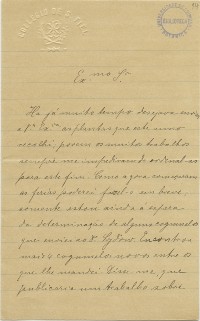 COLLEGIO DE S. FIEL
Ex.mo Sr.
Ha já muito tempo desejava enviar
a V. Ex.a as plantas que este anno
recolhi, porem os muitos trabalhos
sempre me impediram de ordinal-as
para este fim. Como agora começaram
as ferias poderei fazel-o em breve,
somente estou ainda á espera
da determinação de alguns cogumelos
que enviei a d. Sydow. Encontrou
mais 2 cogumelos novos entre os
que lhe mandei. Disse-me que
publicaria um trabalho sobre